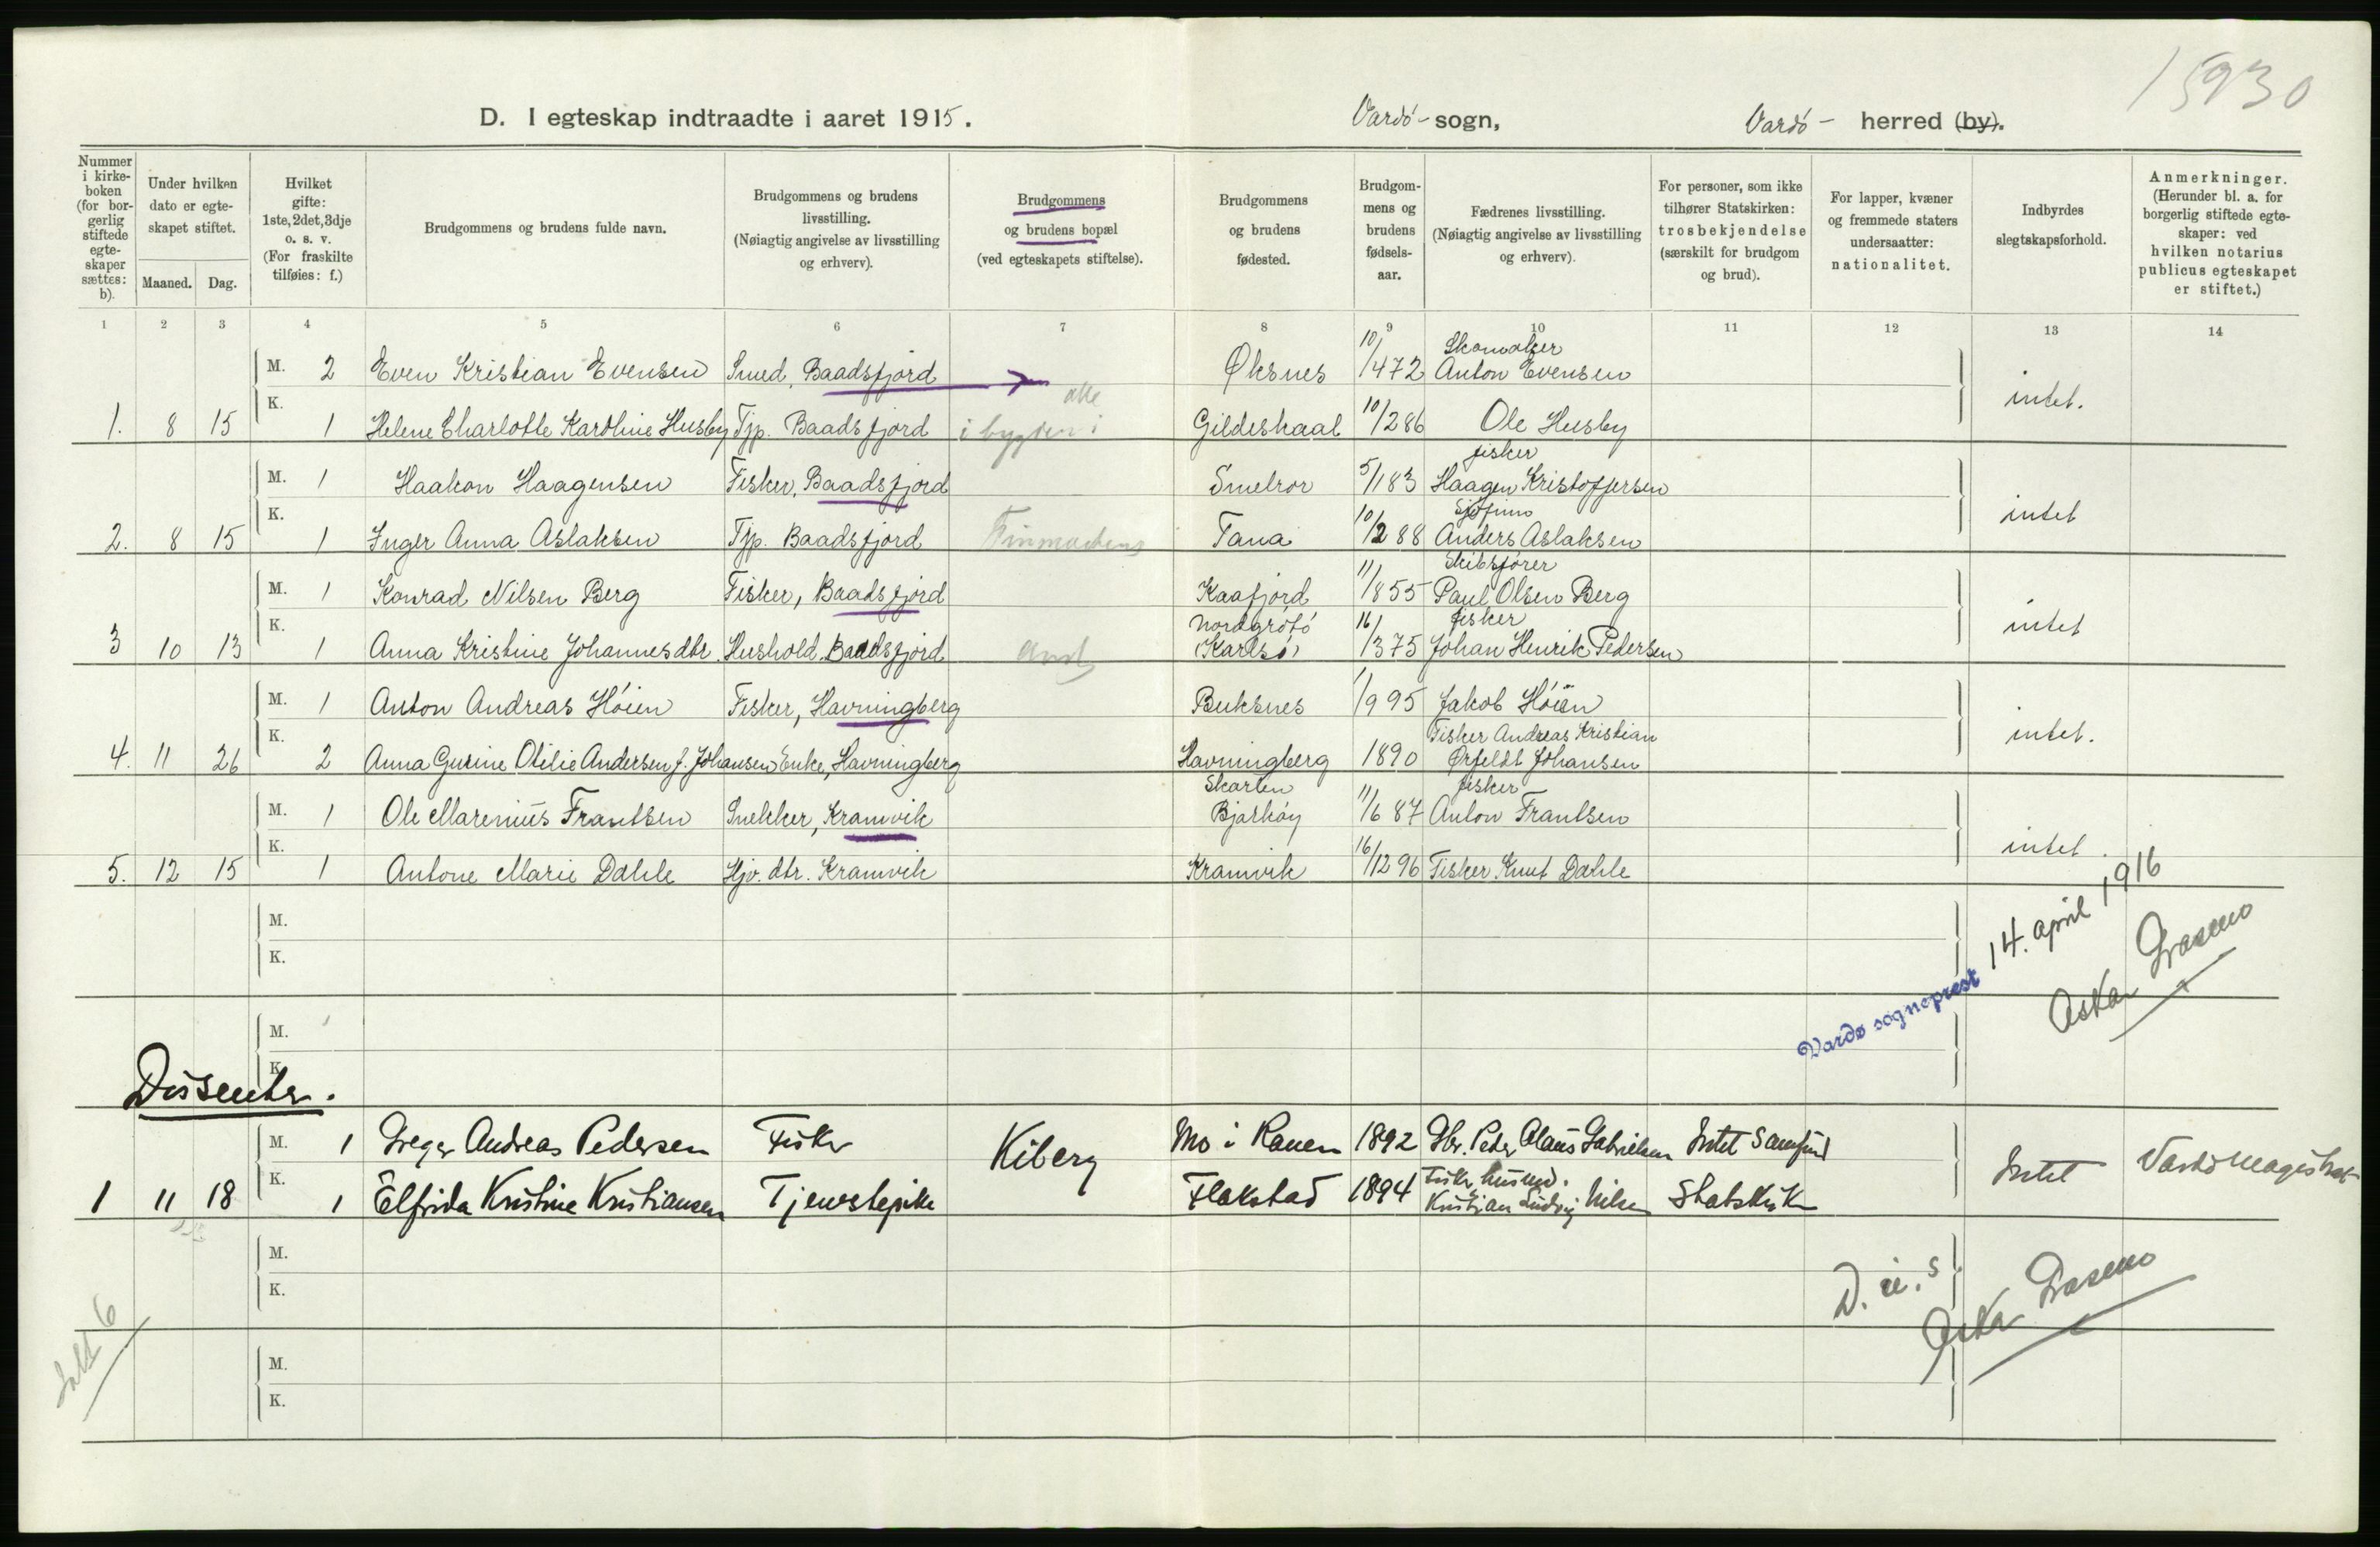 15930
D. I egteskap indtraadte i aaret 1915. Vardø- sogn, Vardø- herred (by).
Nummer i kirkeboken (for borgerlig stiftede egteskaper sættes: b).
Under hvilken dato er egteskapet stiftet.
Maaned. Dag.
Hvilket gifte: 1ste, 2det, 3dje o. s. v. (For fraskilte tilføies: f.)
Brudgommens og brudens fulde navn.
Brudgommens og brudens livsstilling. (Nøiagtig angivelse av livsstilling og erhverv).
Brudgommens og brudens bopæl (ved egteskapets stiftelse).
Brudgommens og brudens fødested.
Brudgommens og brudens fødselsaar.
Fædrenes livsstilling. (Nøiagtig angivelse av livsstilling og erhverv).
For personer, som ikke tilhører Statskirken: trosbekjendelse (særskilt for brudgom og brud).
For lapper, kvæner og fremmede staters undersaatter: nationalitet.
Indbyrdes slegtskapsforhold.
Anmerkninger. (Herunder bl. a. for borgerlig stiftede egteskaper: ved hvilken notarius publicus egteskapet er stiftet.)
1 2 3 4 5 6 7 8 9 10 11 12 13 14
M. 2 Even Kristian Evensen Smed, Baadsfjord Øksnes 10/4 72 Skomaker Anton Evensen
K. 1. 8 15 1 Helene Charlotte Karoline Husby Tjp. Baadsfjord alle i bygden i Gildeskaal 10/2 86 Ole Husby intet.
M. 1 Haakon Haagensen Fisker, Baadsfjord Smelror 5/1 83 fisker Haagen Kristoffersen
K. 2. 8 15 1 Inger Anna Aslaksen Tjp. Baadsfjord Finmarkens Tana 10/2 88 Sjøfinn Anders Aslaksen intet
M. 1 Konrad Nilsen Berg Fisker, Baadsfjord Kaafjord 11/8 55 Skibsfører Paul Olsen Berg
K. 3 10 13 1 Anna Kristine Johannesdtr. Hushold. Baadsfjord amt Nordgrötö (Karlsö) 16/3 75 fisker Johan Henrik Pedersen intet
M. 1 Anton Andreas Höien Fisker, Havningberg Buksnes 1/9 95 Jakob Höien
K. 4. 11 26 2 Anna Gurine Otilie Andersen f. Johansen Enke, Havningberg Havningberg 1890 Fisker Andreas Kristian Ørfeldt Johansen intet.
M. 1 Ole Marenius Frantsen Snekker, Kramvik Bjarköy 11/6 87 fisker Anton Frantsen
K. 5. 12 15 1 Antone Marie Dahle Hjv. dtr. Kramvik Kramvik 16/12 96 Fisker Knut Dahle intet.
M.
K.
Vardø sogneprest 14. april 1916
M.
K.
Dissenter.
M. 1 Andreas Pedersen Fisker Kiberg Mo i Ranen 1892 Intet samfund
K. 1 11 18 1 Elfrida Kristine Kristiansen Tjenstepike Flakstad 1894 Kristian Ludvig Nilsen Statskirk Intet Vardö magistrat
M.
K.
M.
K.